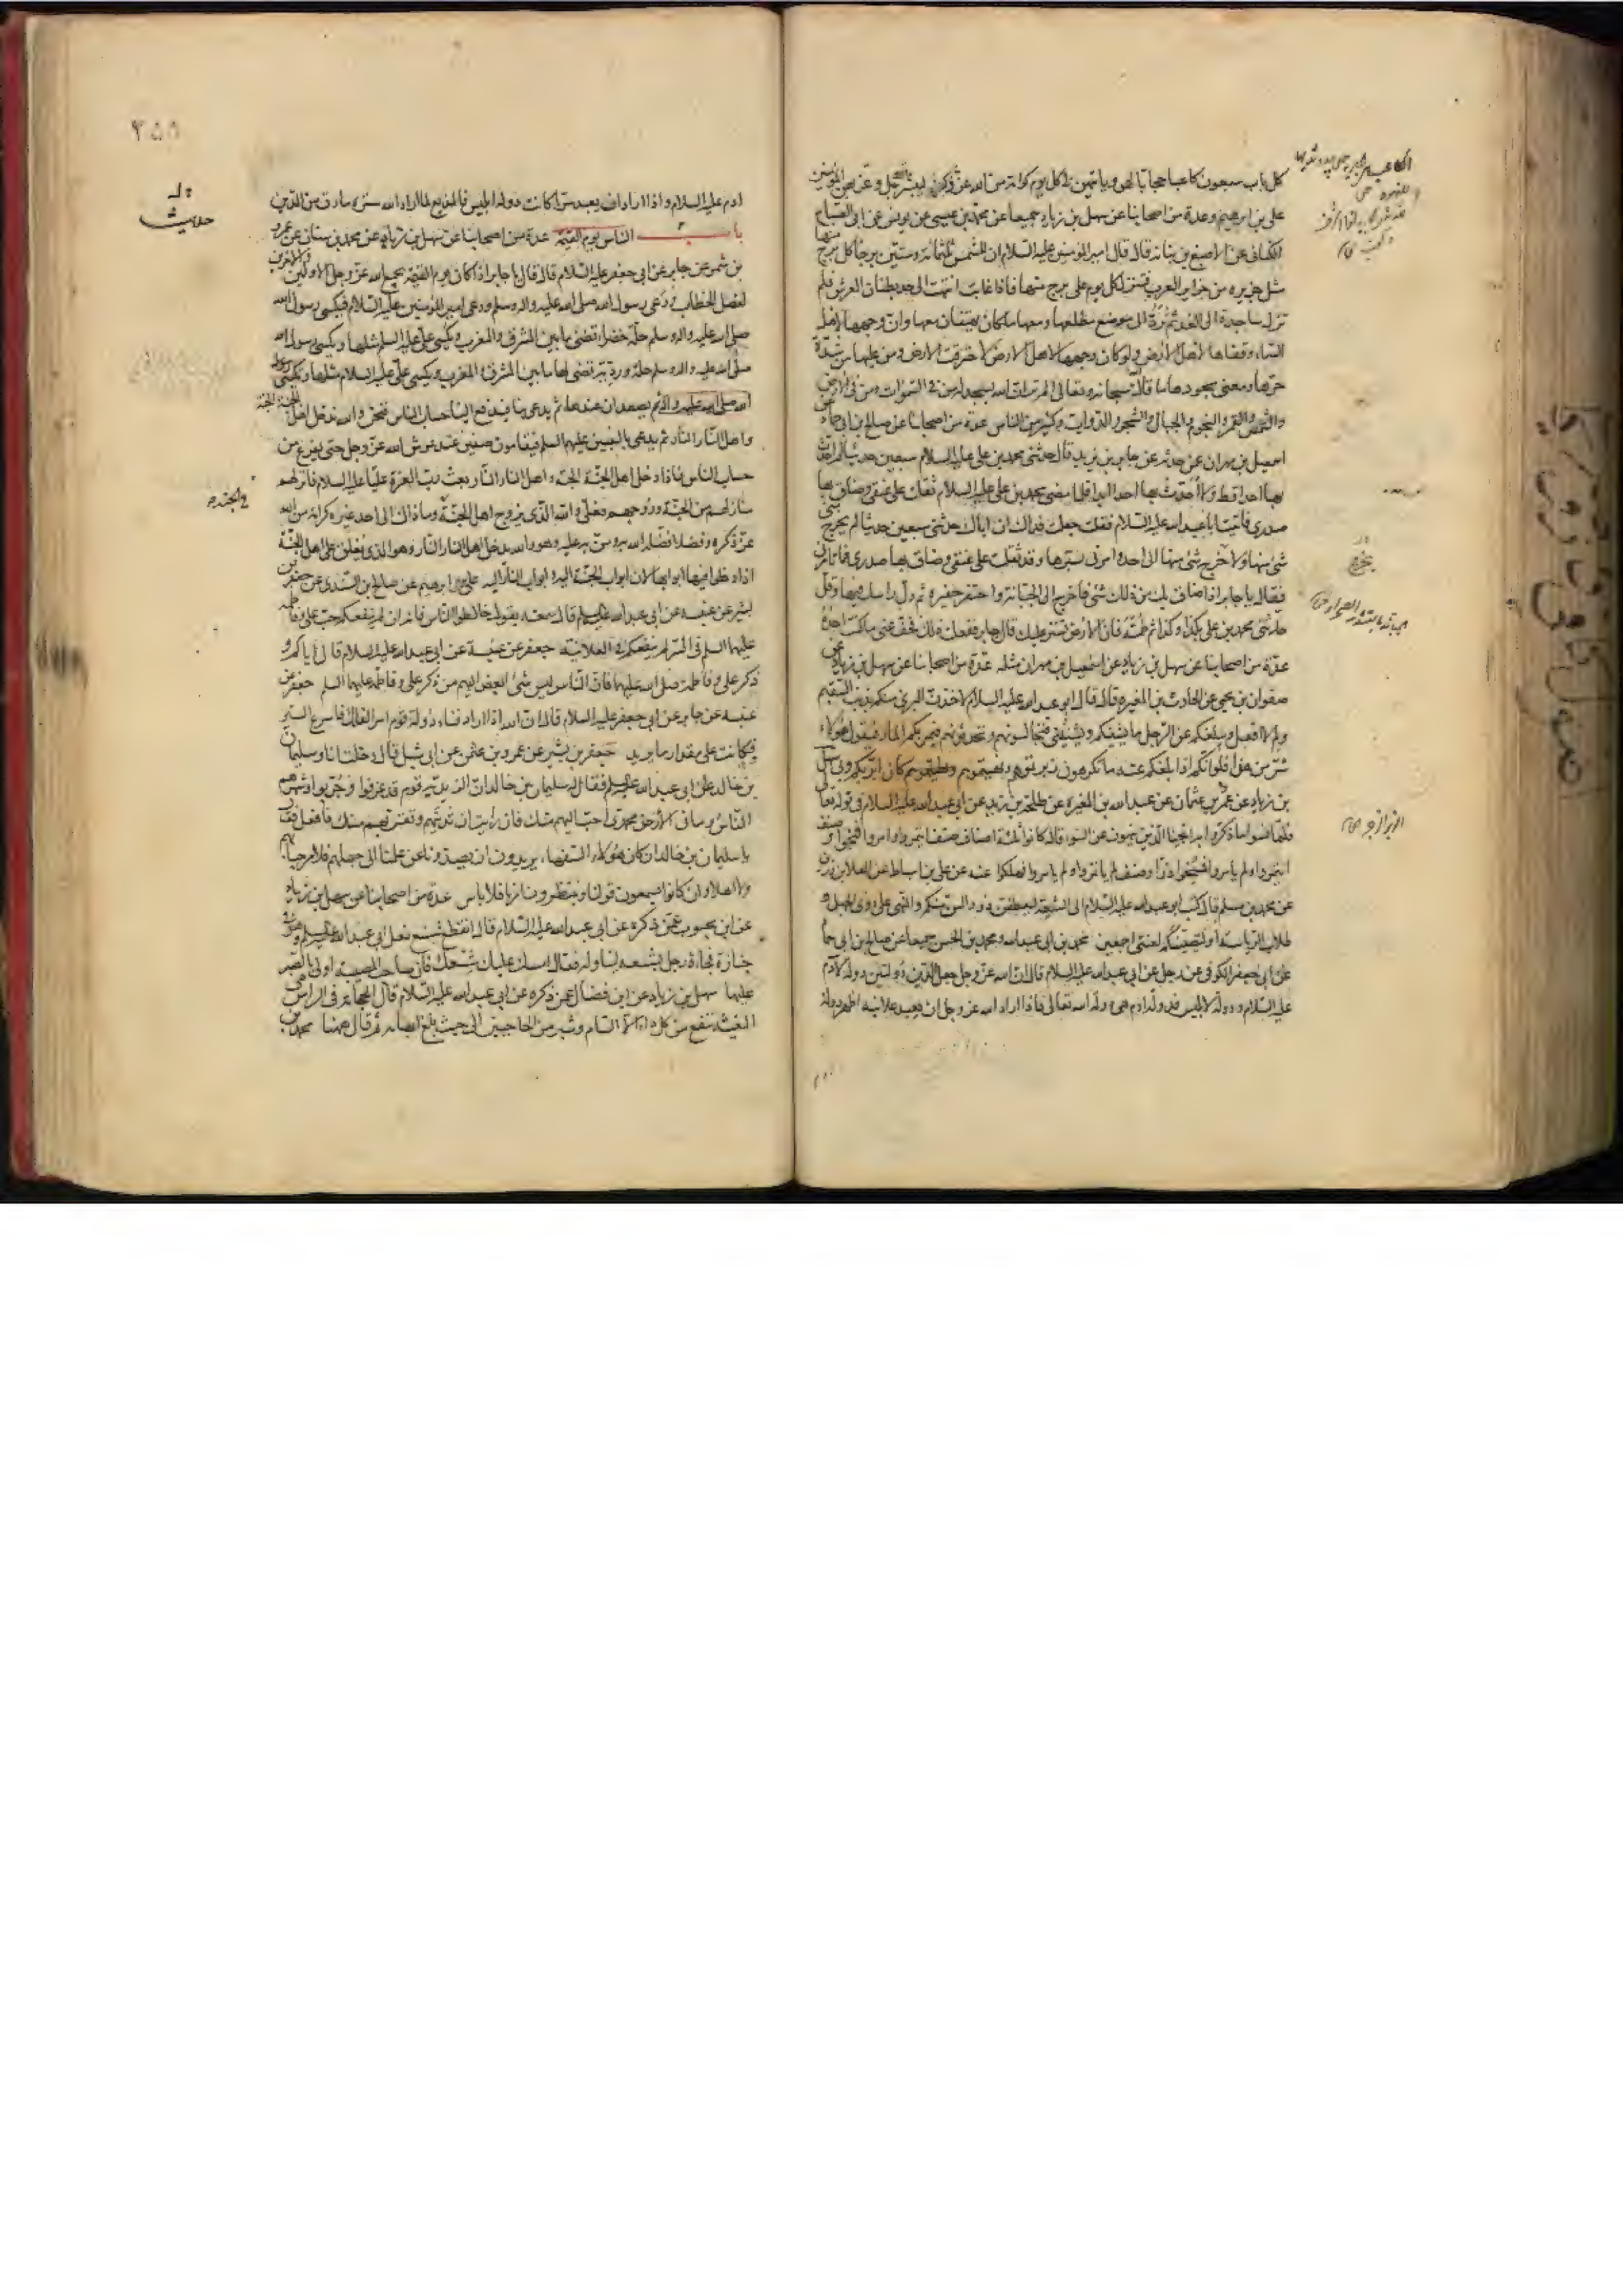 كل باب سبعون كاعبا حجابا لهن وياتيهن كل يوم كرامة من الله عز ذكره ليبشر الله عز وجل بهن المؤمنين
علي بن ابرهيم وعدة من اصحابنا عن سهل بن زياد جميعا عن محمد بن عيسى عن يونس عن ابي الصباح
الكناني عن الاصبغ بن نباتة قال قال امير المومنين عليه السلام ان للشمس ثلثمائة وستين برجا كل برج منها
مثل جزيرة من جزاير العرب فتنزل كل يوم على برج منها فاذا غابت انتهت الى حد بطنان العرش فلم
تزل ساجدة الى الغد ثم ترد الى موضع مطلعها ومعها ملكان يهتفان معها وان وجهها لاهل
السماء وقفاها لاهل الارض ولو كان وجهها لاهل الارض لاحترقت الارض ومن عليها من شدة
حرها ومعنى سجودها ما قال سبحانه وتعالى الم تر ان الله يسجد له من في السموات ومن في الارض
والشمس والقمر والنجوم والجبال والشجر والدواب وكثير من الناس عدة من اصحابنا عن صالح بن ابي حماد عن
اسمعيل بن مهران عن حدثه عن جابر بن يزيد قال حدثني محمد بن علي عليه السلام سبعين حديثا لم احدث
بها احدا قط ولا احدث بها احدا ابدا فلما مضى محمد بن علي عليه السلام ثقلت على عنقي وضاق بها
صدري فاتيت ابا عبد الله عليه السلام فقلت جعلت فداك ان اباك حدثني سبعين حديثا لم يخرج مني
شئ منها ولا اخرج شئ منها الى احد وامرني بسترها وقد ثقلت على عنقي وضاق بها صدري فما تامرني
فقال يا جابر اذا ضاق بك من ذلك شئ فاخرج الى الجبانة واحتفر حفيرة ثم دل راسك فيها وقل
حدثني محمد بن علي بكذا وكذا ثم طمه فان الارض تستر عليك قال جابر ففعلت ذلك فخف عني ما كنت اجده
عدة من اصحابنا عن سهل بن زياد عن اسمعيل بن مهران مثله عدة من اصحابنا عن سهل بن زياد عن
صفوان بن يحيى عن الحارث بن المغيرة قال قال ابو عبد الله عليه السلام لاخذن البرئ منكم بذنب السقيم
ولم لا افعل ويبلغكم عن الرجل ما يشينكم ويشينني فتجالسونهم وتحدثونهم فيمر بكم المار فيقول هؤلاء
شر من هذا فلو انكم اذا بلغكم عنه ما تكرهون زبرتموهم ونهيتموهم كان ابر بكم وبي سهل
بن زياد عن عمرو بن عثمان عن عبد الله بن المغيرة عن طلحة بن زيد عن ابي عبد الله عليه السلام في قوله تعالى
فلما نسوا ما ذكروا به انجينا الذين ينهون عن السوء قال كانوا ثلثة اصناف صنف ائتمروا وامروا فنجوا وصنف
ائتمروا ولم يامروا فمسخوا ذرا وصنف لم ياتمروا ولم يامروا فهلكوا عنه عن علي بن اسباط عن العلا بن رزين
عن محمد بن مسلم قال كتب ابو عبد الله عليه السلام الى الشيعة ليعطفن ذووا السن منكم والنهى على ذوي الجهل و
طلاب الرياسة او لتصيبنكم لعنتي اجمعين محمد بن ابي عبد الله ومحمد بن الحسن جميعا عن صالح بن ابي حماد
عن ابي جعفر الكوفي عن رجل عن ابي عبد الله عليه السلام قال ان الله عز وجل جعل الدين دولتين دولة لادم
عليه السلام ودولة لابليس فدولة ادم هي دولة الله تعالى فاذا اراد الله عز وجل ان يعبد علانية اظهر دولة
٢٥٨
ادم عليه السلام واذا اراد ان يعبد سرا كانت دولة ابليس فالمذيع لما اراد الله ستره مارق من الدين
حديث
باب الناس يوم القيمة عدة من اصحابنا عن سهل بن زياد عن محمد بن سنان عن عمرو
بن شمر عن جابر عن ابي جعفر عليه السلام قال قال يا جابر اذا كان يوم القيمة جمع الله عز وجل الاولين والاخرين
لفصل الخطاب دعي رسول الله صلى الله عليه واله وسلم ودعي امير المومنين عليه السلام فيكسى رسول الله
صلى الله عليه واله وسلم حلة خضراء تضئ ما بين المشرق والمغرب ويكسى علي عليه السلم مثلها ويكسى رسول الله
صلى الله عليه واله وسلم حلة وردية تضئ لها ما بين المشرق والمغرب ويكسى علي عليه السلام مثلها
ثم يصعدان عندها ثم يدعى بنا فيدفع الينا حساب الناس فنحن والله ندخل اهل الجنة الجنة
واهل النار النار ثم يدعى بالنبيين عليهم السلم فيقامون صفين عند عرش الله عز وجل حتى نفرغ من
حساب الناس فاذا دخل اهل الجنة الجنة واهل النار النار بعث رب العزة عليا عليه السلام فانزلهم
منازلهم من الجنة وزوجهم فعلي والله الذي يزوج اهل الجنة وما ذاك الى احد غيره كرامة من الله
عز ذكره وفضلا فضله الله به ومن به عليه وهو والله يدخل اهل النار النار وهو الذي يغلق على اهل الجنة
اذا دخلوا فيها ابوابها لان ابواب الجنة اليه وابواب النار اليه علي بن ابرهيم عن صالح بن السندي عن جعفر بن
بشير عن عنبسة عن ابي عبد الله عليه السلم قال سمعته يقول خالطوا الناس فانه ان لم ينفعكم حب علي وفاطمة
عليهما السلم في السر لم ينفعكم في العلانية جعفر عن عنبسة عن ابي عبد الله عليه السلام قال اياكم و
ذكر علي وفاطمة صلى الله عليهما فان الناس ليس شئ ابغض اليهم من ذكر علي وفاطمة عليهما السلم جعفر عن
عنبسة عن جابر عن ابي جعفر عليه السلام قال ان الله اذا اراد فناء دولة قوم امر الفلك فاسرع السير
فكانت على مقدار ما يريد جعفر بن بشير عن عمرو بن عثمن عن ابي شبل قال دخلت انا وسليمان
بن خالد على ابي عبد الله عليه السلم فقال له سليمان بن خالد ان الزيدية قوم قد عرفوا وجربوا وشهرهم
الناس وما في الارض محمدي احب اليهم منك فان رايت ان تدنيهم وتقربهم منك فافعل فقال
يا سليمان بن خالد ان كان هؤلاء السفهاء يريدون ان يصدونا عن علمنا الى جهلهم فلا مرحبا بهم
ولا اهلا وان كانوا يسمعون قولنا وينتظرون امرنا فلا باس عدة من اصحابنا عن سهل بن زياد
عن ابن محبوب عمن ذكره عن ابي عبد الله عليه السلام قال انقطع شسع نعل ابي عبد الله عليه السلم وهو في
جنازة فجاء رجل بشسعه ليناوله فقال امسك عليك شسعك فان صاحب المصيبة اولى بالصبر
عليها سهل بن زياد عن ابن فضال عمن ذكره عن ابي عبد الله عليه السلام قال الحجامة في الراس هي
المغيثة تنفع من كل داء الا السام وشبر من الحاجبين الى حيث بلغ ابهامه ثم قال ههنا محمد بن